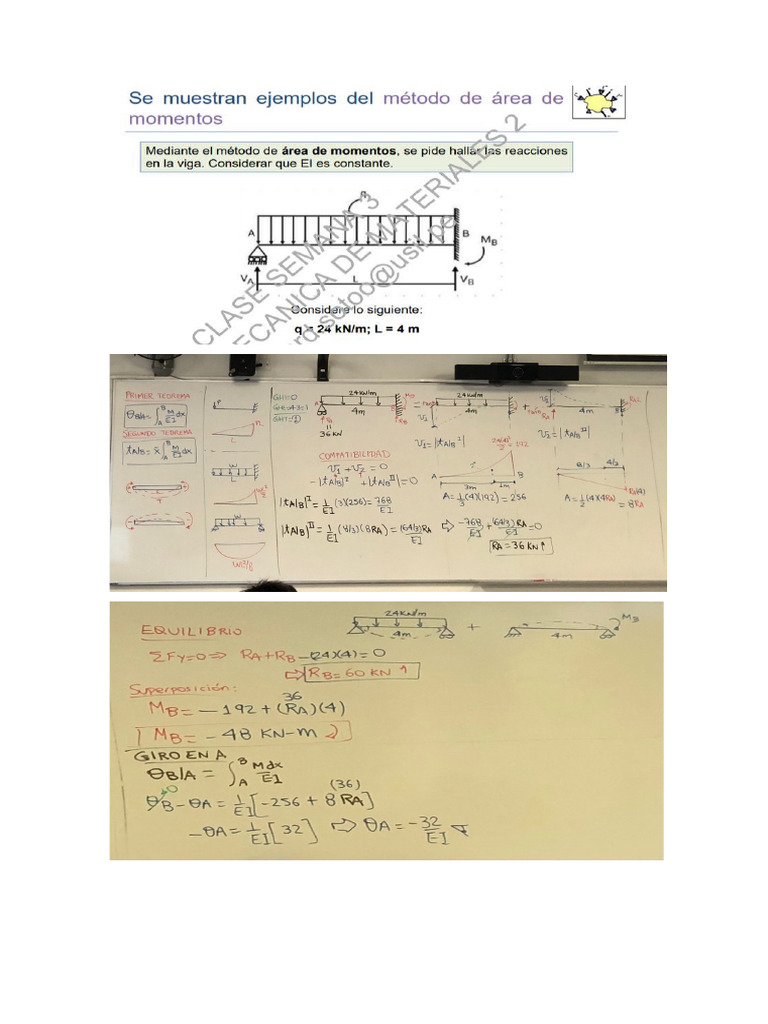 Se muestran ejemplos del método de área de
momentos
Mediante el método de área de momentos, se pide hallar las reacciones
en la viga. Considerar que EI es constante.
CLASE SEMANA 3
MECANICA DE MATERIALES 2
q
A
B
M_B
V_A
L
V_B
Considere lo siguiente:
q = 24 kN/m; L = 4 m
PRIMER TEOREMA
θB/A = ∫_A^B M/EI dx
SEGUNDO TEOREMA
tA/B = x̄ ∫_A^B M/EI dx
P
L
W
W
GH=0
GE=4-3=1
GHT=1
24KN/m
A
4m
RA
RB
36 KN
=
24 KN/m
4m
+
4m
RA
V1=|tA/B^I|
V2=|tA/B^II|
COMPATIBILIDAD
V1 + V2 = 0
-|tA/B|^I + |tA/B^II| = 0
|tA/B|^I = 1/EI (3)(256) = 768/EI
|tA/B|^II = 1/EI (8/3)(8RA) = (64/3)RA/EI
⇨ -768/EI + (64/3)RA/EI = 0
RA = 36 KN ↑
=192
A
3m
1m
B
A = 1/3 (4)(192) = 256
8/3
4/3
RA(4)
A = 1/2 (4)(4RA)
= 8RA
EQUILIBRIO
24KN/m
4m
+
4m
MB
ΣFy=0 ⇒ RA+RB-(24)(4)=0
⇨ RB= 60 KN ↑
Superposición:
36
MB = -192 + (RA)(4)
MB = -48 KN-m
GIRO EN A
θB/A = ∫_A^B Mdx/EI
0
(36)
θB - θA = 1/EI [-256 + 8 RA]
-θA = 1/EI [32] ⇨ θA = -32/EI